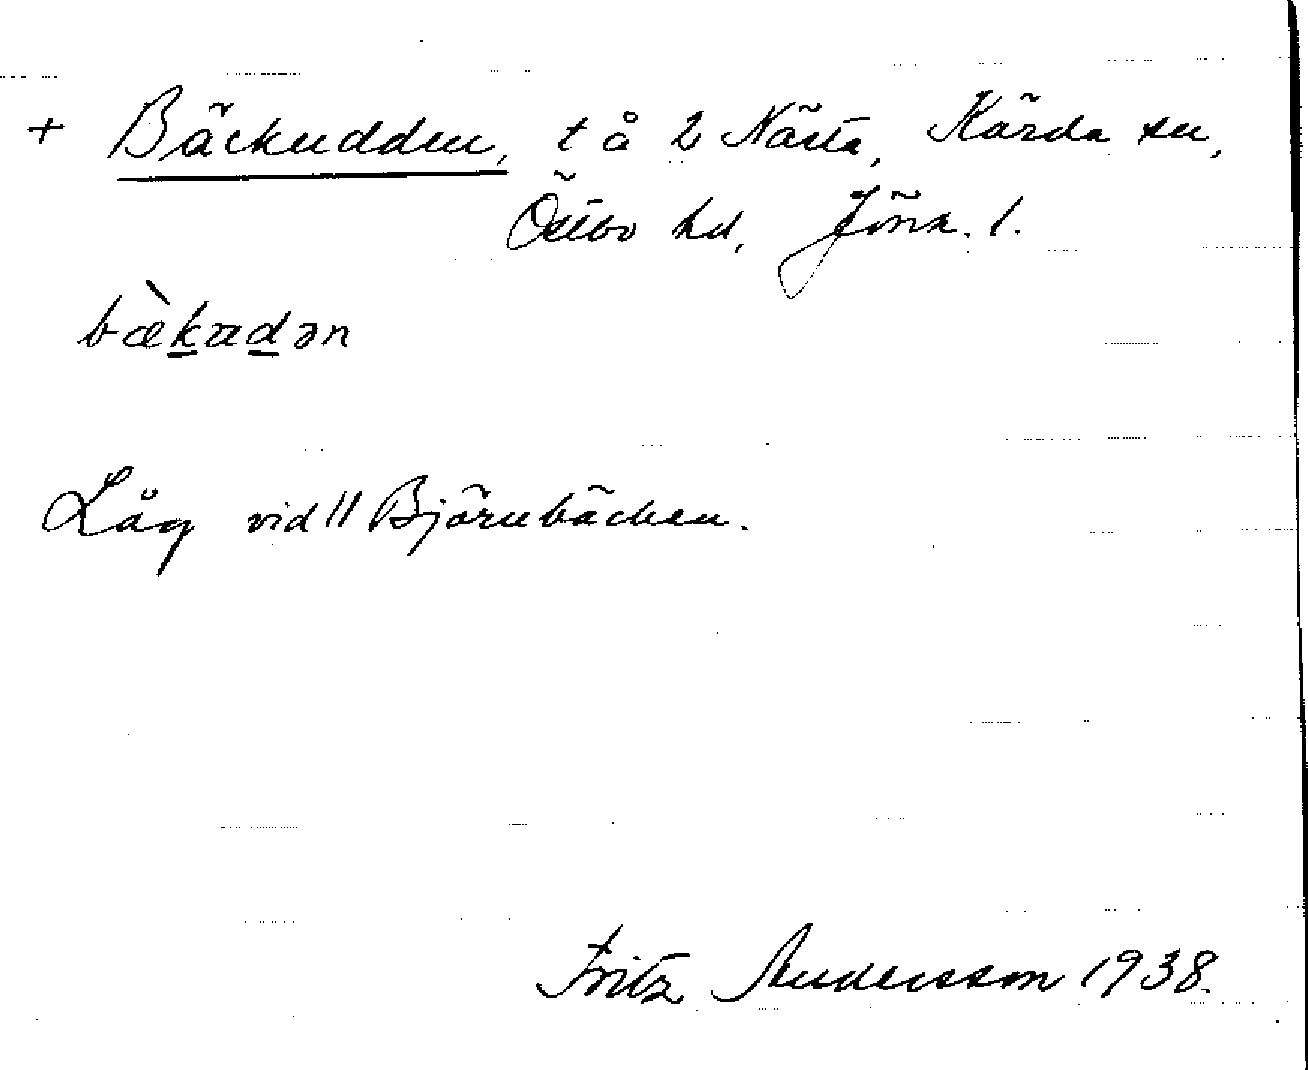 + Bäckudden, t å 2 Nästa, Kärda sn,
Östbo hd, Jönk. l.
bæ̀k̲ud̲ən
Låg vid || Björnbäcken.
Fritz Andersson 1938.